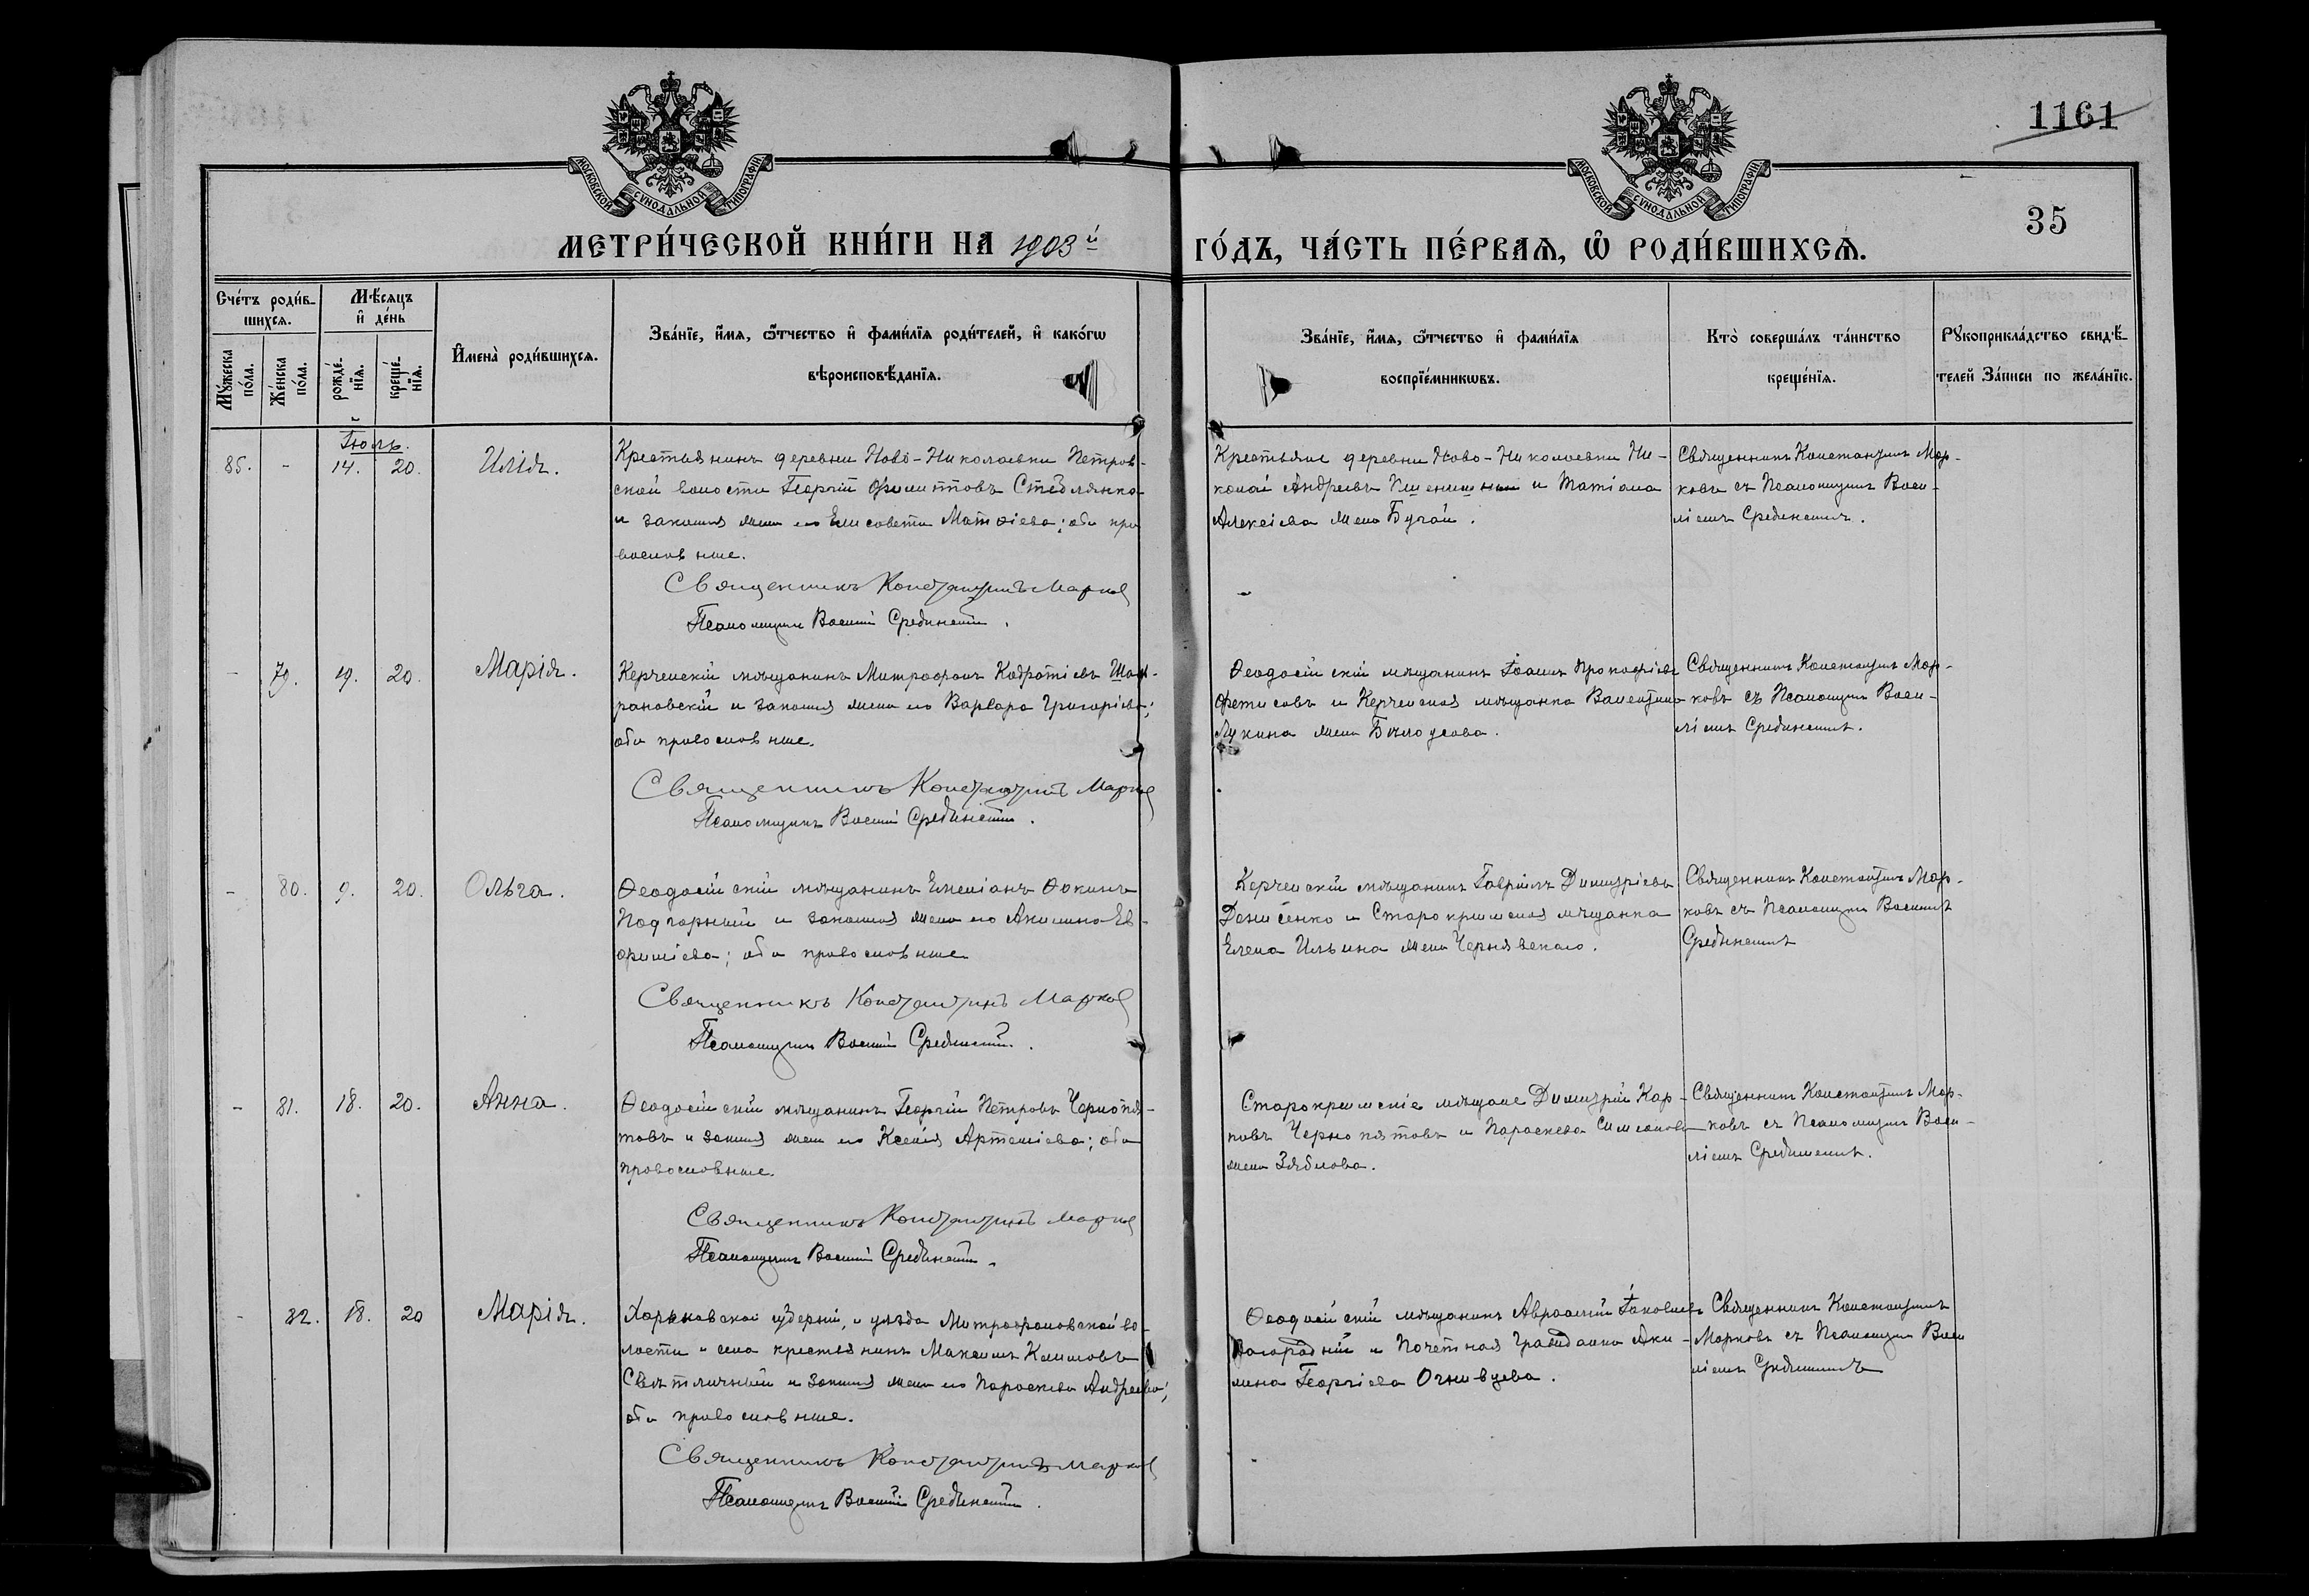 1161
35
МОСКОВСКОЙ СѴНОДАЛЬНОЙ ТИПОГРАФІИ
МОСКОВСКОЙ СѴНОДАЛЬНОЙ ТИПОГРАФІИ
МЕТРИ́ЧЕСКОЙ КНИ́ГИ НА 1903й
ГО́ДЪ, ЧА́СТЬ ПЕ́РВАѦ, Ѡ҆ РОДИ́ВШИХСѦ.
Сче́тъ роди́в-
шихсѧ.
Мꙋ́жеска по́ла.
Же́нска по́ла.
Мѣ́сѧцъ
и҆ де́нь
рожде́-нїѧ.
креще́-нїѧ.
И҆мена̀ роди́вшихсѧ.
Зва́нїе, и҆́мѧ, ѻ҆́тчество и҆ фами́лїѧ роди́телей, и҆ како́гѡ
вѣроисповѣ́данїѧ.
Зва́нїе, и҆́мѧ, ѻ҆́тчество и҆ фами́лїѧ
воспрїе́мникѡвъ.
Кто̀ соверша́лъ та́инство
креще́нїѧ.
Рꙋкоприкла́дство свидѣ́-
телей за́писи по жела́нїю.
Іюль.
85. - 14. 20. Илія.
Крестьянинъ деревни Ново-Николаевки Петров-
ской волости Георгій Филипповъ Стеблянко
и законная жена его Елисавета Матѳіева; оба пра
вославные.
Священникъ Константинъ Марков
Псаломщикъ Василій Срединскій.
Крестьяне деревни Ново-Николаевки Ни-
колай Андреевъ Пшеничный и Татіана
Алексіева жена Бугай.
Священникъ Константинъ Мар-
ковъ съ Псаломщикъ Васи-
ліемъ Срединскимъ.
- 79. 19. 20. Марія.
Керченскій мѣщанинъ Митрофанъ Кодратіевъ
рановскій и законная жена его Варвара Григоріева;
оба православные.
Священникъ Константинъ Марков
Псаломщикъ Василій Срединскій.
Ѳеодосійскій мѣщанинъ Іоаннъ Прокофіевъ
Фетисовъ и Керченская мѣщанка Валентина
Лукина жена Бѣлоусова.
Священникъ Константинъ Мар-
ковъ съ Псаломщикъ Васи-
ліемъ Срединскимъ.
- 80. 9. 20. Ольга.
Ѳеодосійскій мѣщанинъ Емеліанъ Ѳокинъ
Подгорный и законная жена его Акилина Ев-
фиміева; оба православные
Священникъ Константинъ Марков
Псаломщикъ Василій Срединскій.
Керченскій мѣщанинъ Гавріилъ Димитріевъ
Денисенко и Старокрымская мѣщанка
Елена Ильина жена Чернявскаго.
Священникъ Константинъ Мар-
ковъ съ Псаломщикъ Василіемъ
Срединскимъ
- 81. 18. 20. Анна.
Ѳеодосійскій мѣщанинъ Георгій Петровъ Чернопя-
товъ и законная жена его Ксенія Артеміева; оба
православные.
Священникъ Константинъ Марков
Псаломщикъ Василій Срединскій.
Старокрымскіе мѣщане Димитрій Кар-
повъ Чернопятовъ и Параскева Симеонова
жена Зяблова.
Священникъ Константинъ Мар-
ковъ съ Псаломщикъ Васи-
ліемъ Срединскимъ.
- 82. 18. 20 Марія.
Харьковской губерніи, и уѣзда Митрофановской во-
лости и села крестьянинъ Максимъ Климовъ
Свѣтличный и законная жена его Параскева Андреева;
оба православные.
Священникъ Константинъ Марков
Псаломщикъ Василій Срединскій.
Ѳеодосійскій мѣщанинъ Авраамій Іаковлевъ
и Почетная Гражданка Аки-
лина Георгіева Огнивцева.
Священникъ Константинъ
Марковъ съ Псаломщикъ Васи
ліемъ Срединскимъ